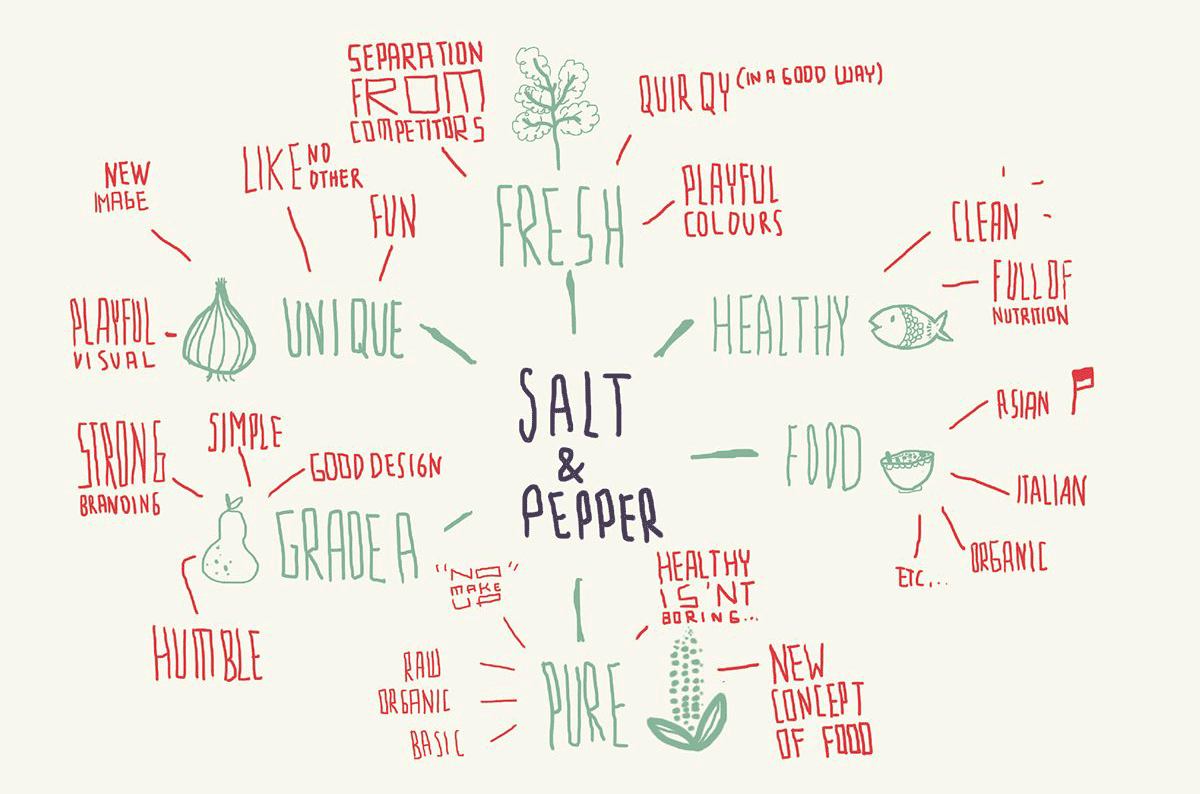 SEPARATION
FROM
COMPETITORS
QUIRQY (IN A GOOD WAY)
LIKE NO
OTHER
NEW
IMAGE
FUN
FRESH
PLAYFUL
COLOURS
CLEAN
UNIQUE
HEALTHY
FULL OF
NUTRITION
PLAYFUL
VISUAL
SALT
&
PEPPER
ASIAN
FOOD
ITALIAN
ORGANIC
ETC...
STRONG
BRANDING
SIMPLE
GOOD DESIGN
GRADE A
HUMBLE
"NO"
MAKE
UP
HEALTHY
IS'NT
BORING...
RAW
ORGANIC
BASIC
PURE
NEW
CONCEPT
OF FOOD